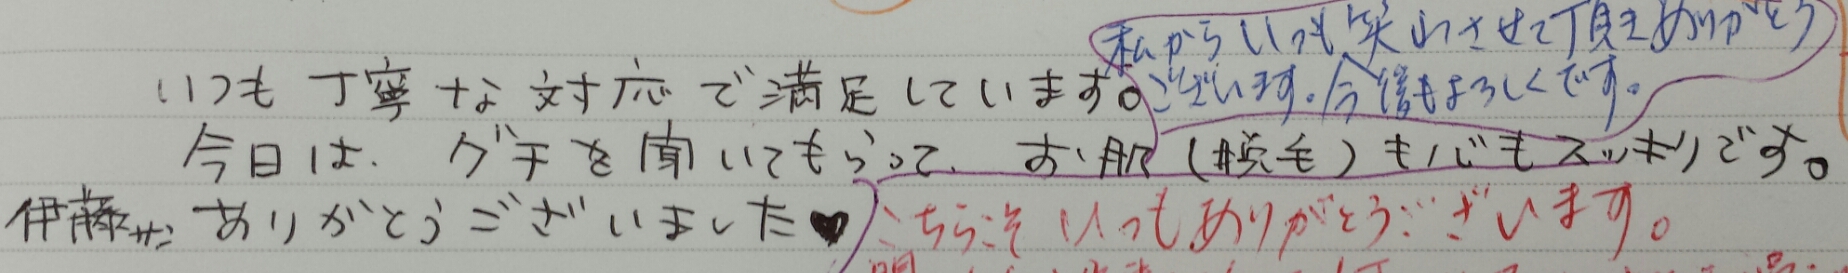 私からいつも笑わさせて頂きありがとう
ございます。今後もよろしくです。
いつも丁寧な対応で満足しています。
今日は、グチを聞いてもらって、お肌(脱毛)も心もスッキリです。
伊藤サンありがとうございました♥
こちらこそいつもありがとうございます。